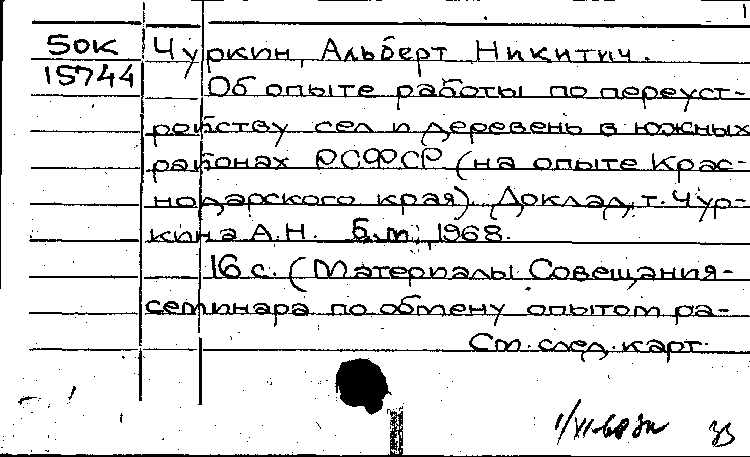 1
50к Чуркин, Альберт Никитич.
15744 Об опыте работы по переуст-
ройству сел и деревень в южных
районах РСФСР (на опыте Крас-
нодарского края). Доклад т. Чур-
кина А.Н. Б.м., 1968.
16 с. (Материалы Совещания-
семинара по обмену опытом ра-
См. след. карт.